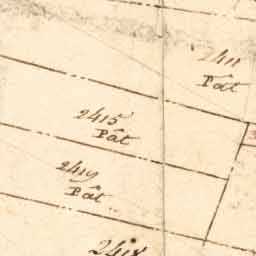 2411
Pât
2415
Pât
2419
Pât
2418